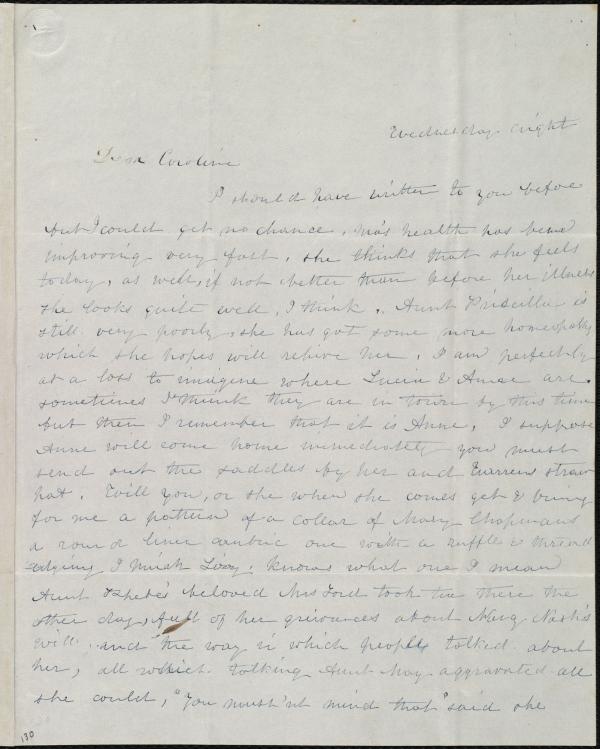 Wednesday night
Dear Caroline
I should have written to you before
but I could get no chance. Ma's health has been
improving very fast, she thinks that she feels
today, as well, if not better than before her illness
she looks quite well, I think. Aunt Priscilla is
still very poorly, she has got some more homeopathy
which she hopes will relieve her. I am perfectly
at a loss to imagine where Lucia & Anne are.
sometimes I think they are in town by this time
but then I remember that it is Anne. I suppose
Anne will come home immediately you must
send out the saddles by her and Warrens straw
hat. Will you, or she when she comes get & bring
for me a pattern of a collar of Mary Chapmans
a round linen cambric one with a ruffle & thread
edging I think Lizzy knows what one I mean
Aunt Phebe's beloved Mrs Ford took tea there the
other day, full of her grievances about
will, and the way in which people talked about
her, all which talking Aunt Mary aggravated all
she could, "You must'nt mind that" said she
130